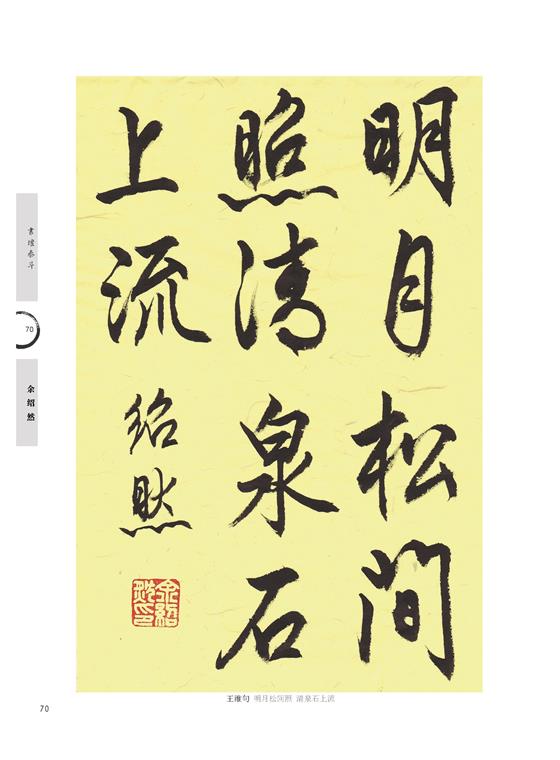 明月松間
照清泉石
上流
紹然
余紹然印
書壇泰斗
70
余绍然
王维句 明月松间照 清泉石上流
70